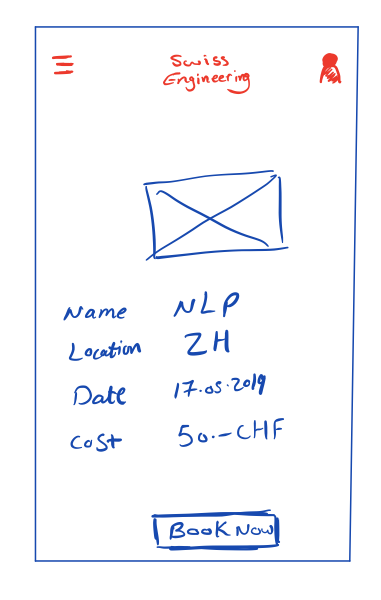 Swiss
Engineering
Name NLP
Location ZH
Date 17.05.2019
Cost 50.-CHF
Book Now